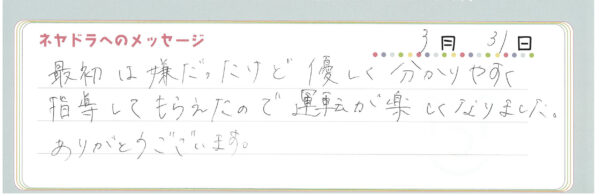 ネヤドラへのメッセージ
3月 31日
最初は嫌だったけど優しく分かりやすく
指導してもらえたので運転が楽しくなりました。
ありがとうございます。